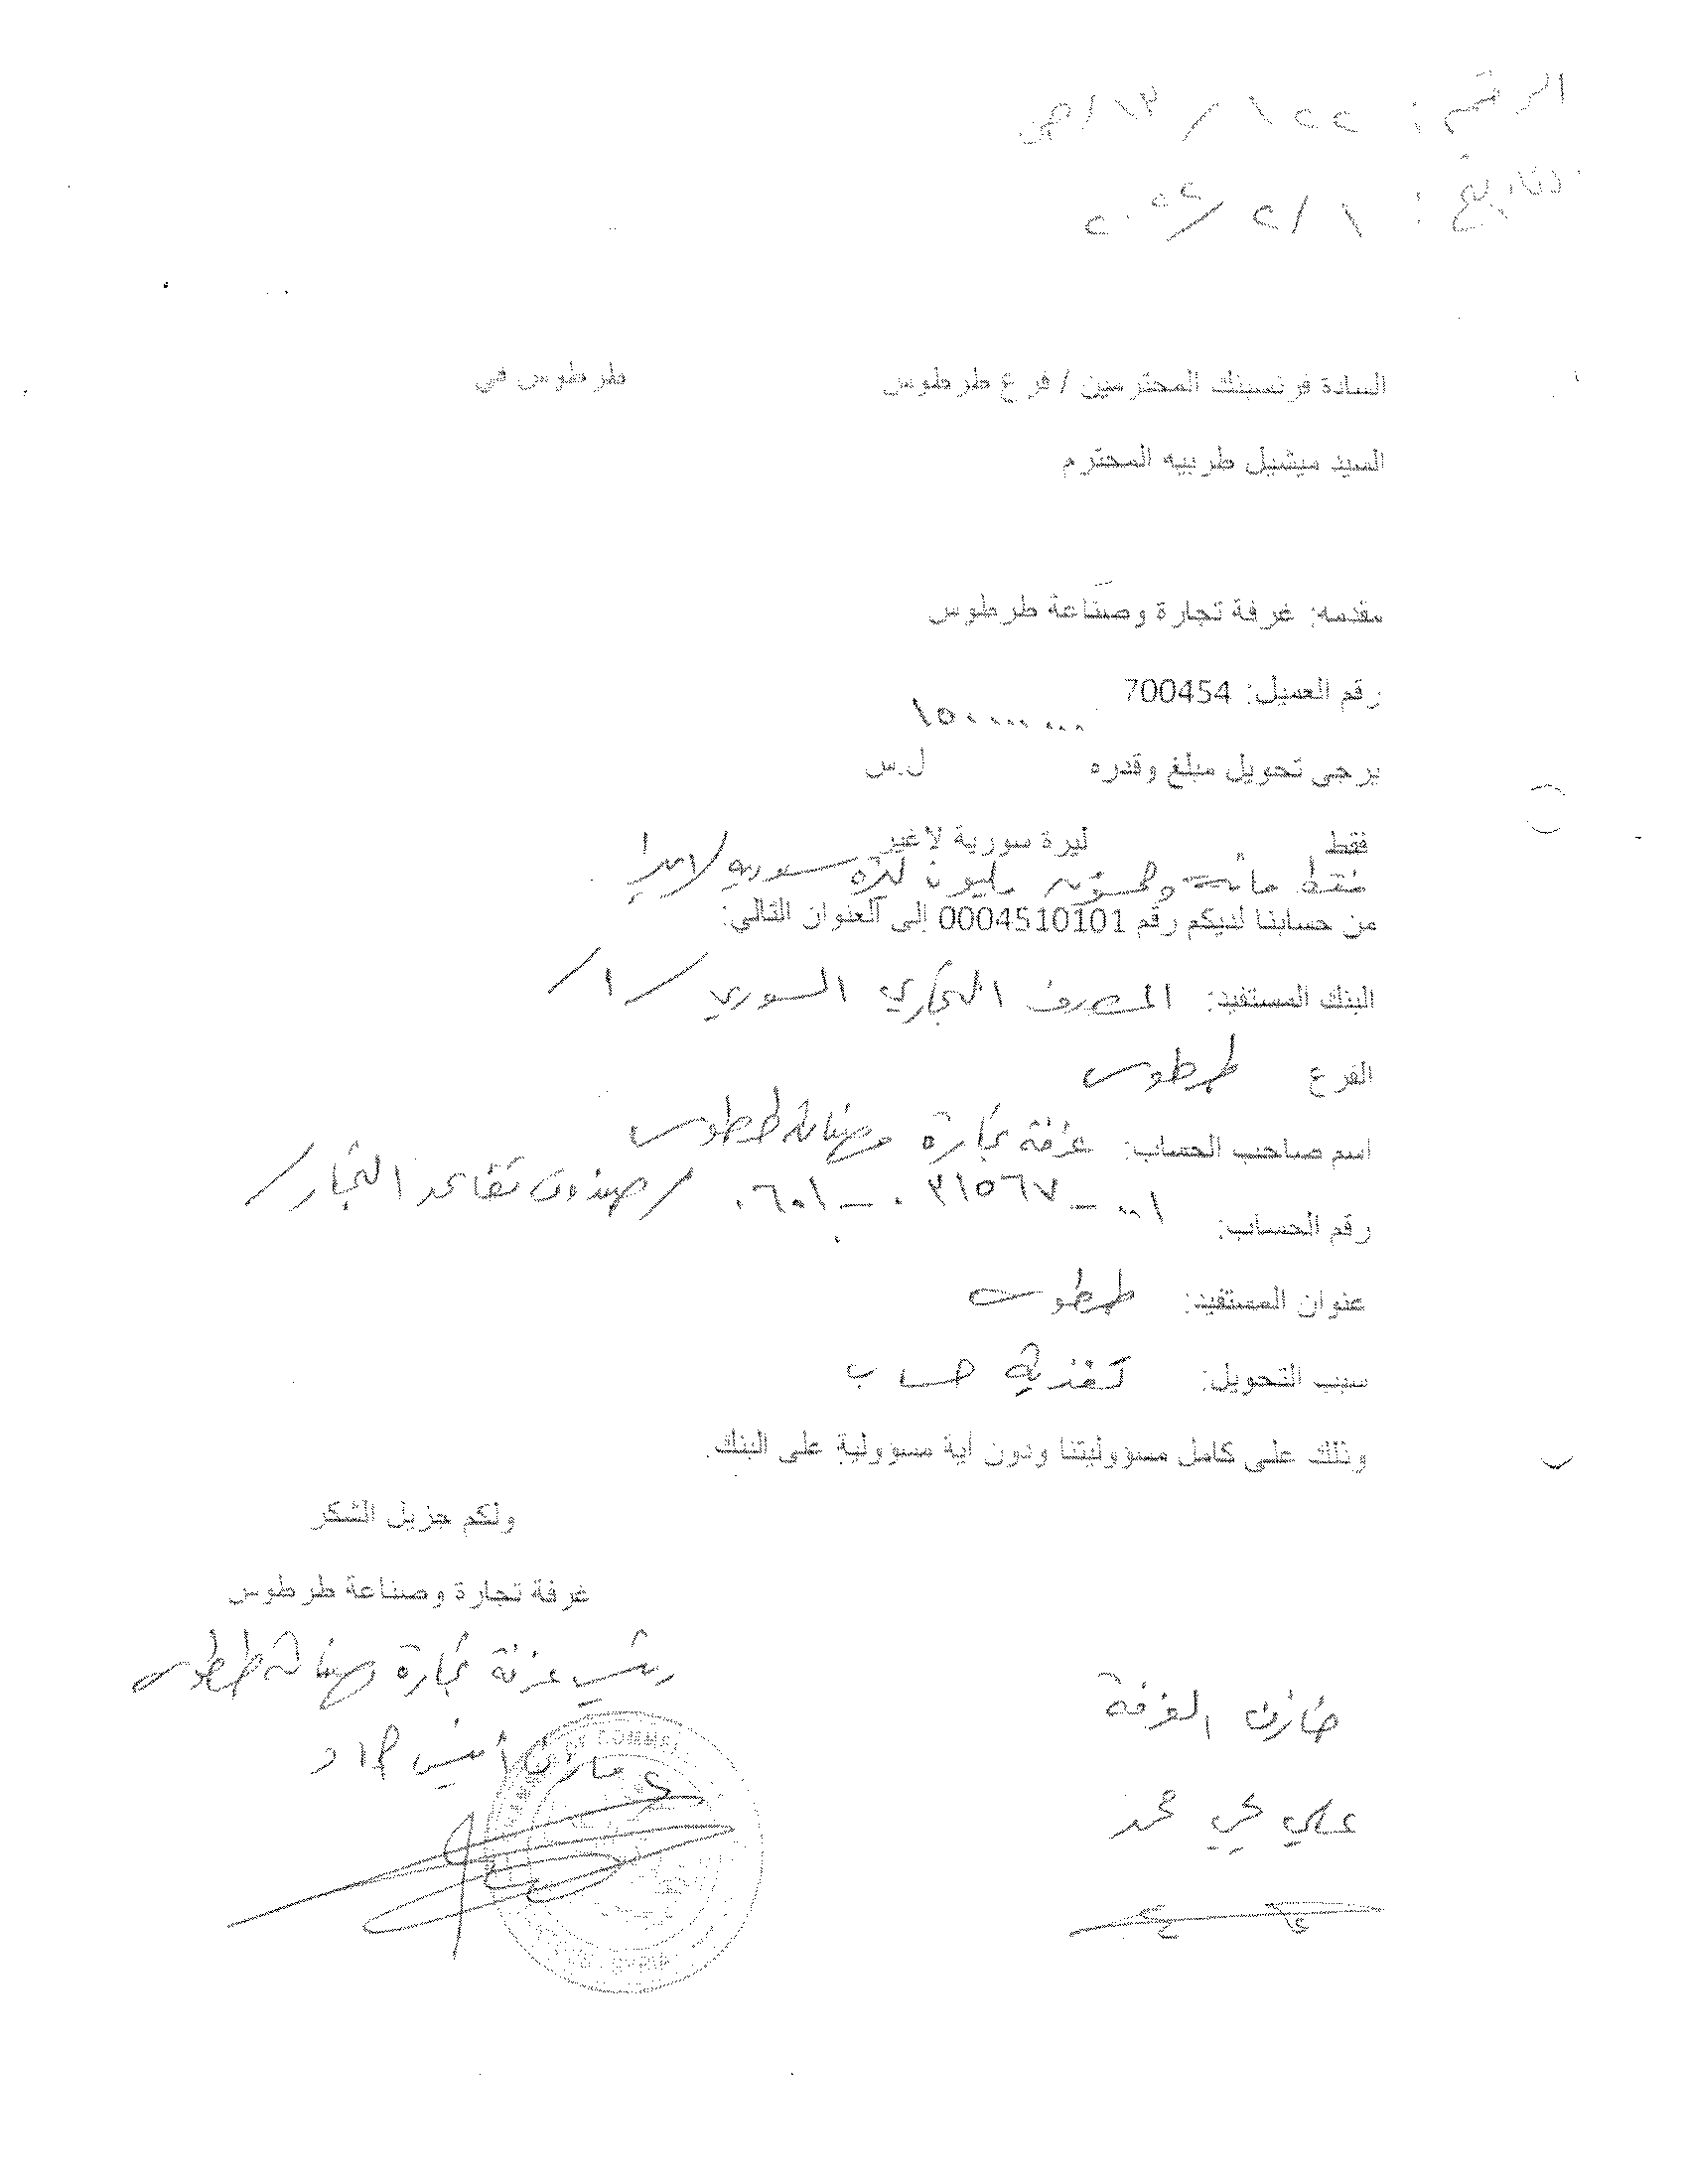 الرقم : ٢٢١ / ١٣/ص
التاريخ : ١ /٢ /
السادة فرنسبنك المحترمين / فرع طرطوس طرطوس في
السيد ميشيل طربيه المحترم
مقدمه: غرفة تجارة وصناعة طرطوس
رقم العميل: 700454
١٥٠٠٠٠٠٠٠
يرجى تحويل مبلغ وقدره ل.س
فقط ليرة سورية لاغير
فقط مائة وخمسون مليون ليرة سورية لاغير
من حسابنا لديكم رقم 0004510101 إلى العنوان التالي:
البنك المستفيد: المصرف التجاري السوري /١/
الفرع طرطوس
اسم صاحب الحساب: غرفة تجارة وصناعة طرطوس
/صندوق تقاعد التجار/
رقم الحساب: ٠٦٠١-٠٣١٥٦٧-٠٠١
عنوان المستفيد: طرطوس
سبب التحويل: تغذية حساب
وذلك على كامل مسؤوليتنا ودون أية مسؤولية على البنك.
ولكم جزيل الشكر
غرفة تجارة وصناعة طرطوس
رئيس غرفة تجارة وصناعة طرطوس
خازن الغرفة
علي يحيى محمد